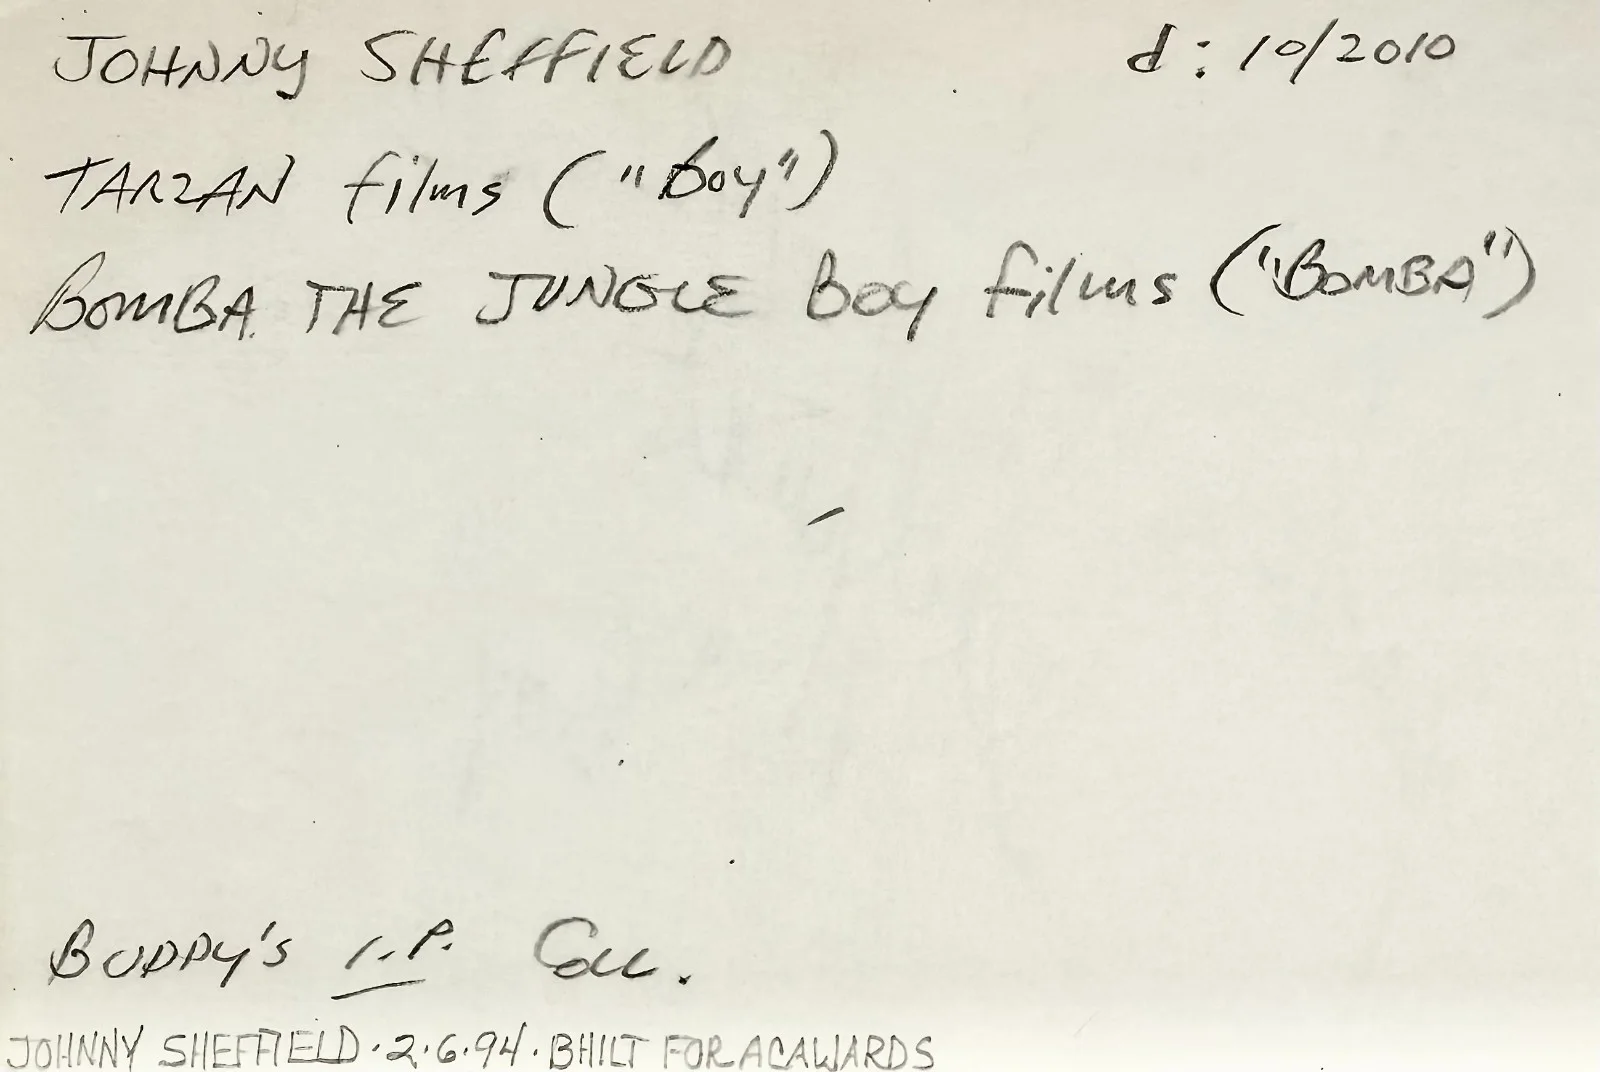 JOHNNY SHEFFIELD d: 10/2010
TARZAN films ("Boy")
BOMBA THE JUNGLE BOY films ("BOMBA")
BUDDY'S I.P. Coll.
JOHNNY SHEFFIELD · 2·6·94 · BHILT FOR ACAWARDS